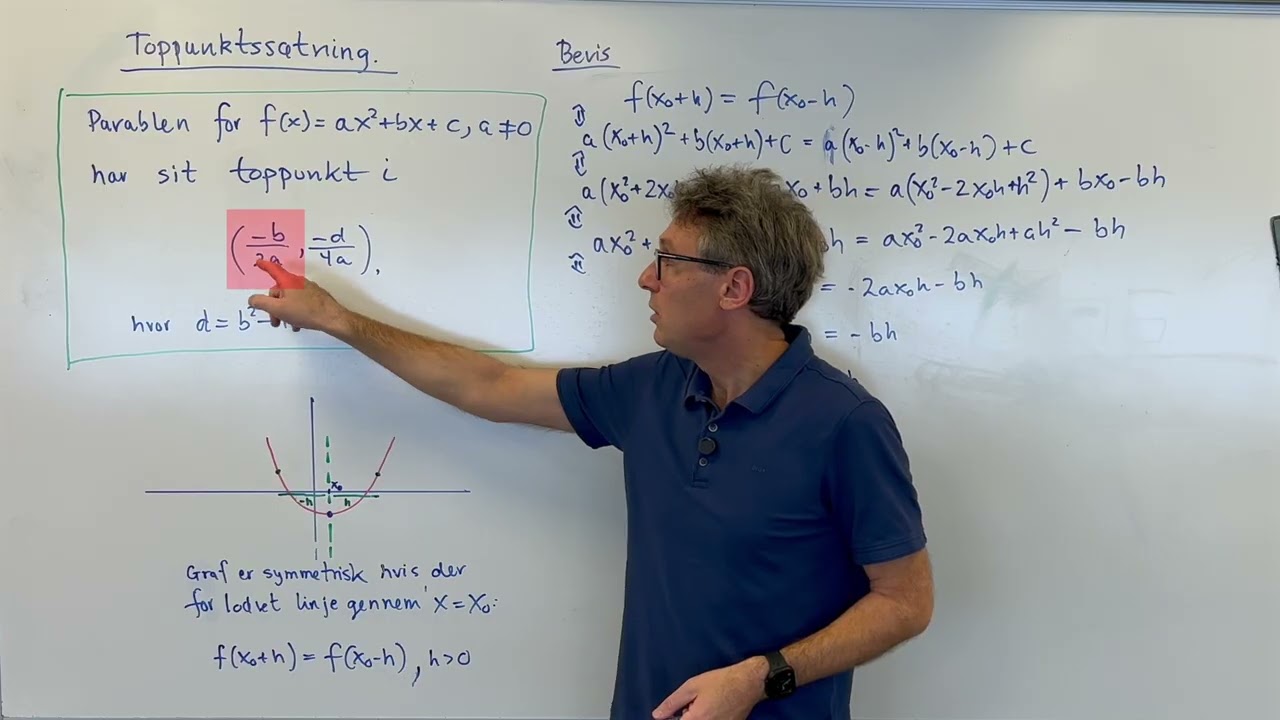 Toppunktssætning.
Parablen for f(x) = ax²+bx+c, a≠0
har sit toppunkt i
(-b/2a, -d/4a),
hvor d = b²-
-h x₀ h
Graf er symmetrisk hvis der
for lodret linje gennem x=x₀:
f(x₀+h) = f(x₀-h), h>0
Bevis
f(x₀+h) = f(x₀-h)
⇕ a(x₀+h)²+b(x₀+h)+c = a(x₀-h)²+b(x₀-h)+c
⇕ a(x₀²+2x₀ x₀+bh = a(x₀²-2x₀h+h²)+bx₀-bh
⇕ ax₀²+ h = ax₀²-2ax₀h+ah²-bh
⇕ = -2ax₀h-bh
= -bh